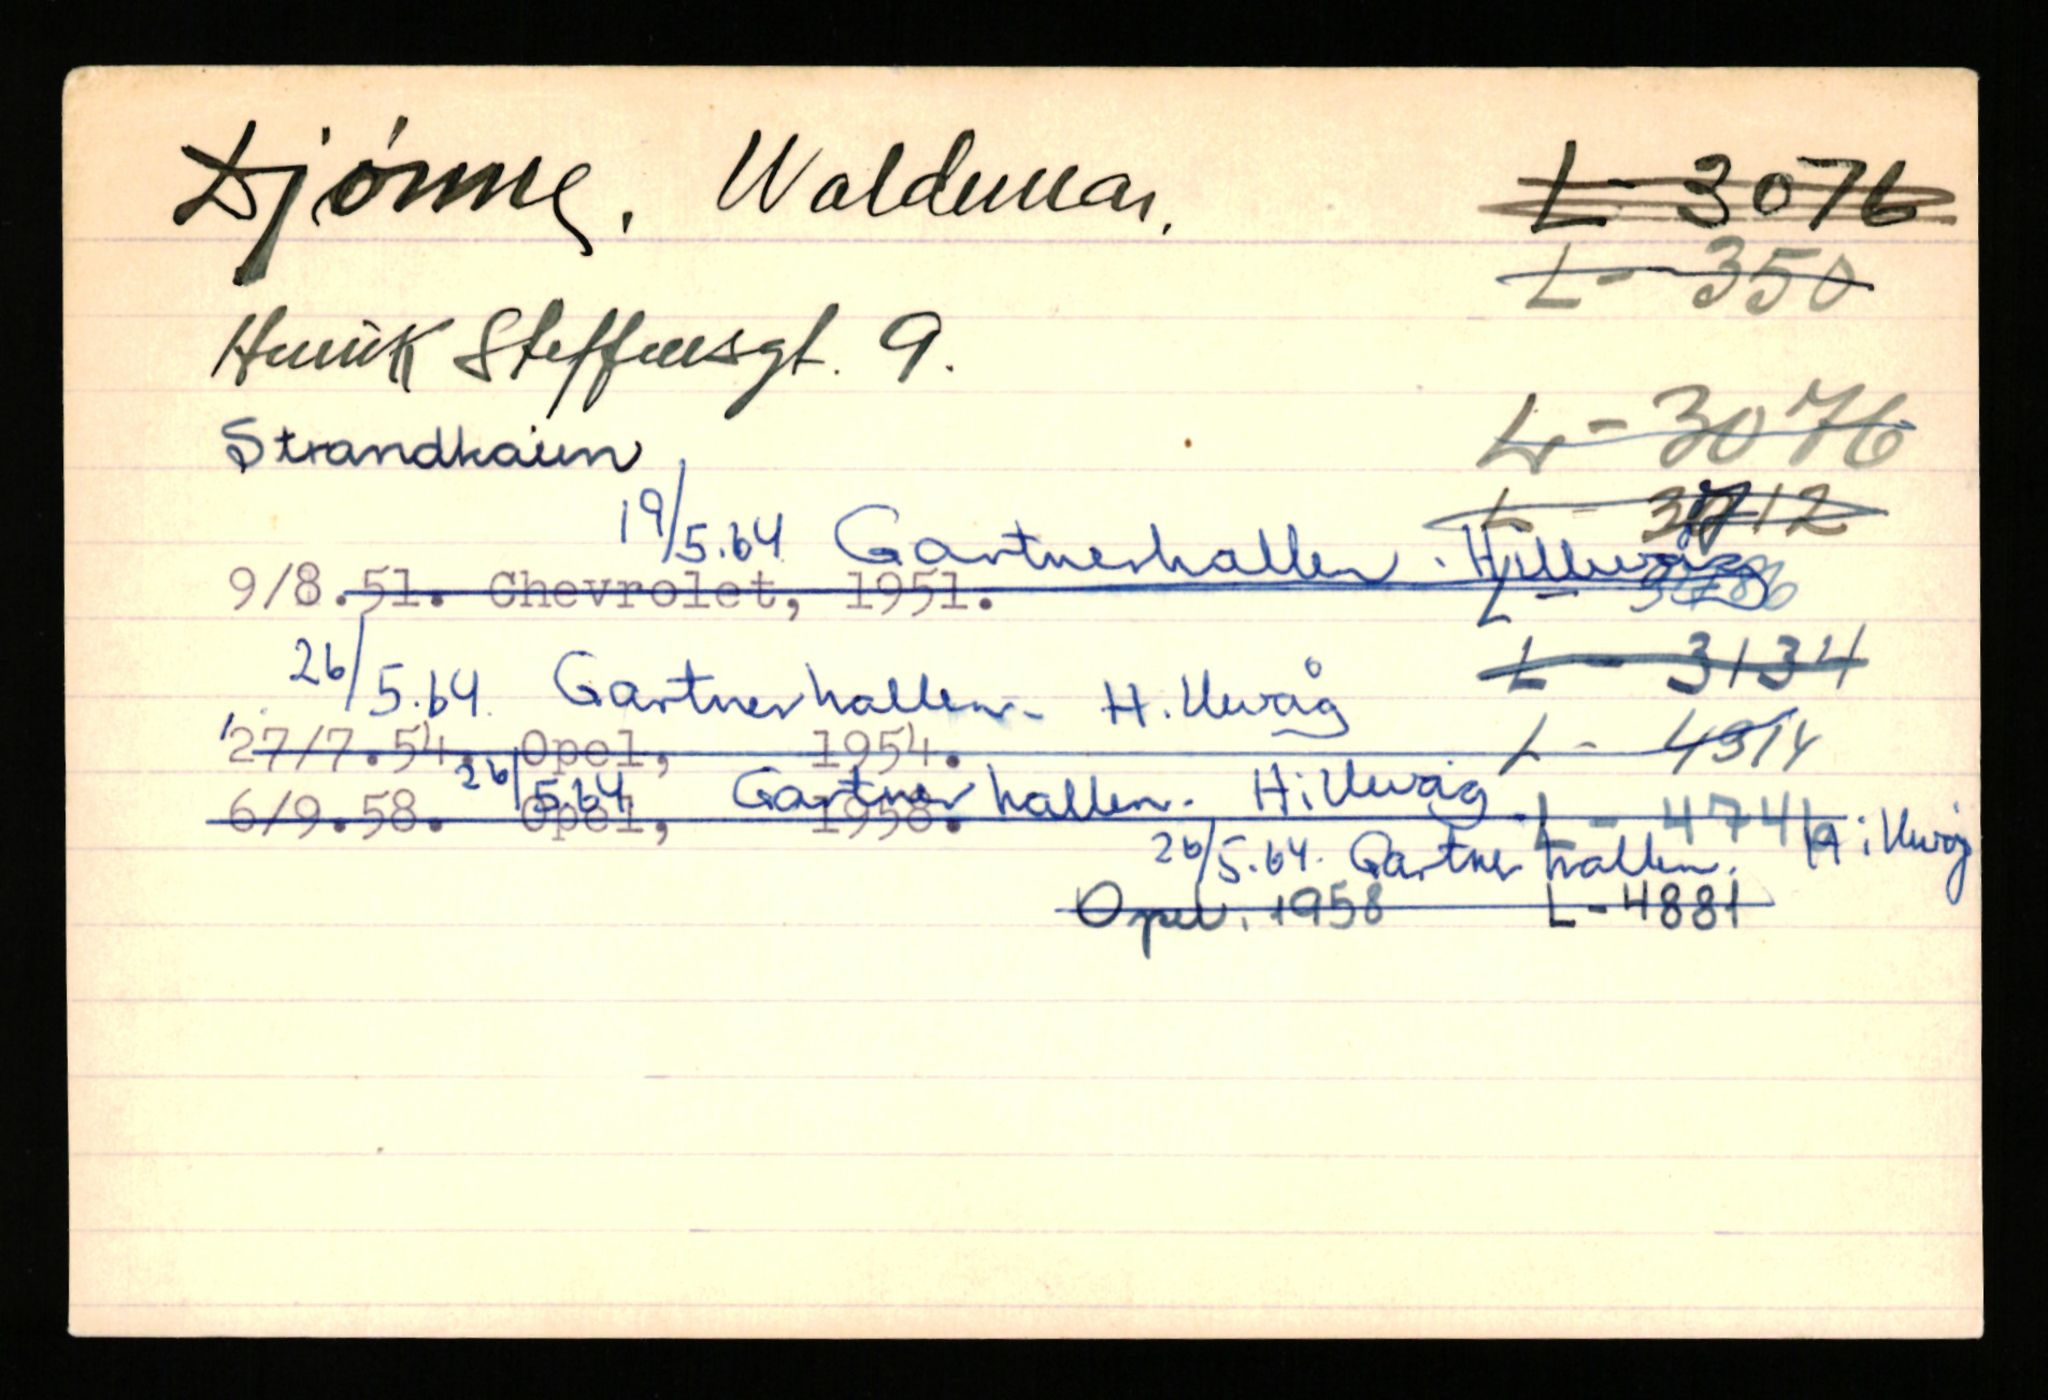 Djønne, Waldemar. L - 3076
L - 350
Henrik Steffensgt. 9.
L - 3076
Strandkaien
L - 3712
19/5.64 Gartnerhallen. Hillevåg
9/8.51. Chevrolet, 1951. L -
L - 3134
26/5.64 Gartnerhallen - Hillevåg
27/7.54. Opel, 1954. L - 4314
26/5.64 Gartnerhallen - Hillevåg
6/9.58. Opel, 1958. L - 4746
26/5.64. Gartnerhallen. Hillevåg
Opel. 1958 L - 4881